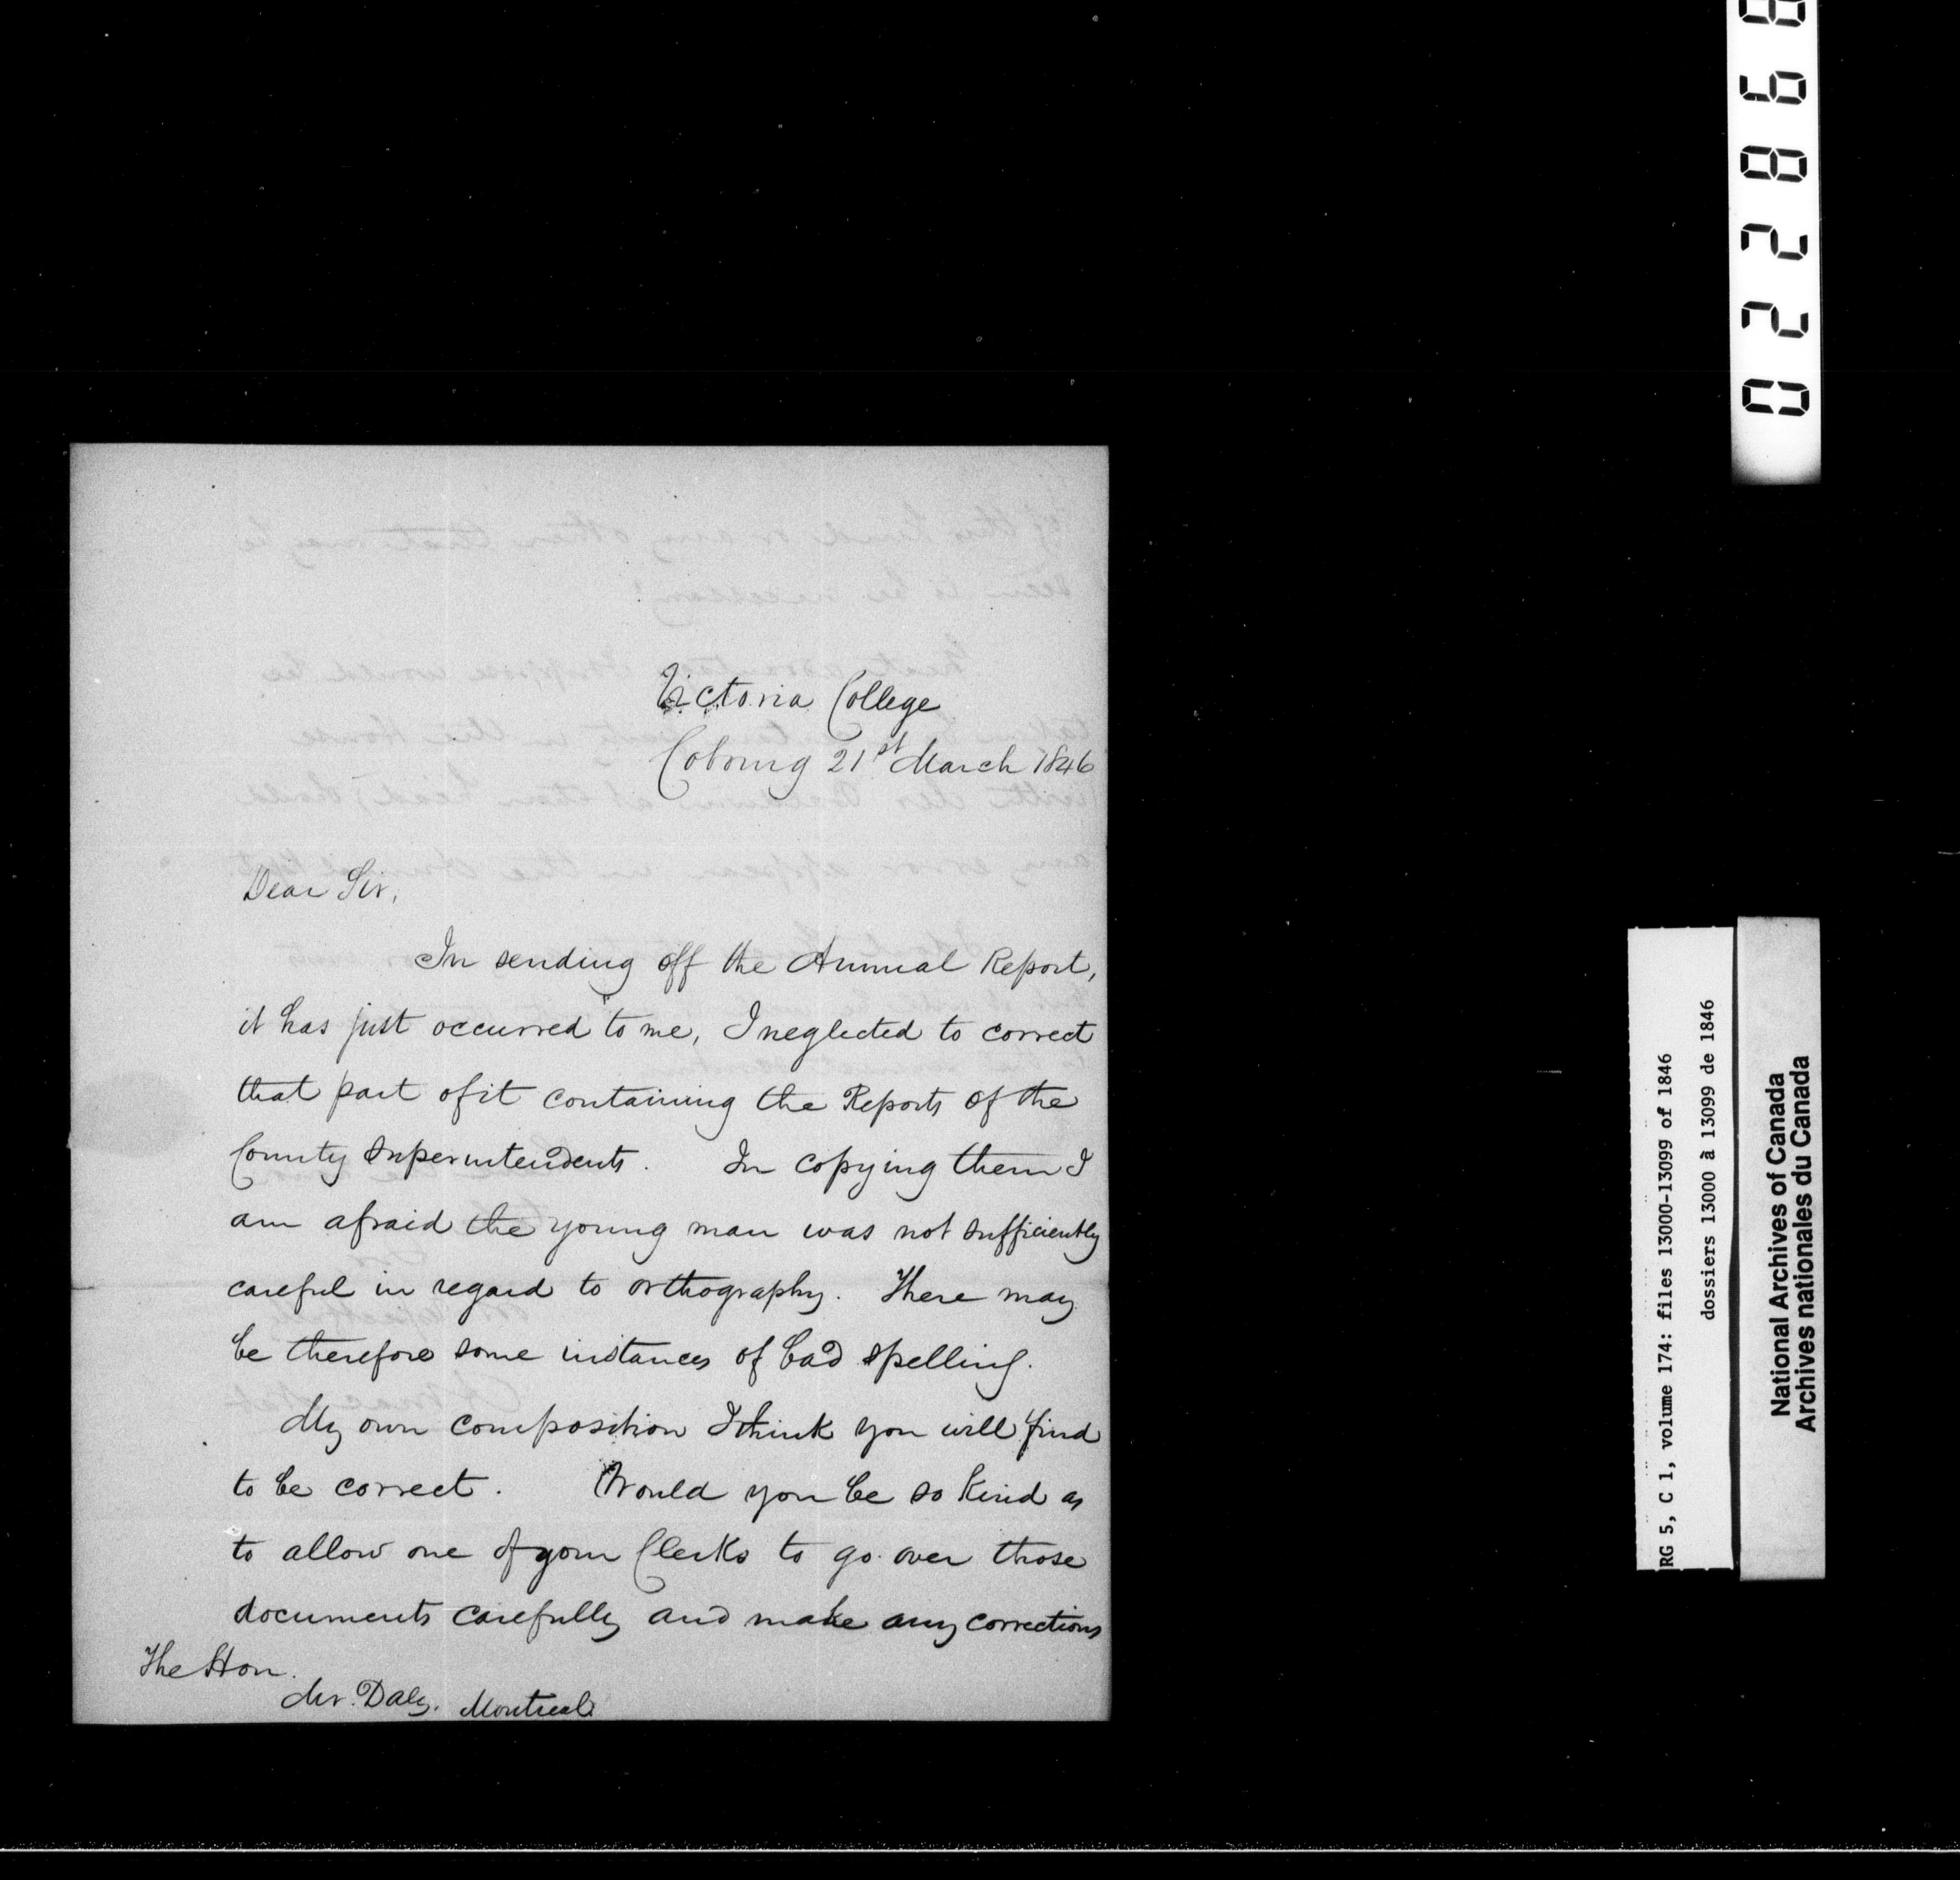 Victoria College
Cobourg 21st March 1846
Dear Sir,
In sending off the Annual Report,
it has just occurred to me, I neglected to correct
that part of it containing the Reports of the
County Superintendents. In copying them I
am afraid the young man was not sufficiently
careful in regard to orthography. There may
be therefore some instances of bad spelling.
My own composition I think you will find
to be correct. Would you be so kind as
to allow one of your Clerks to go over those
documents carefully and make any corrections
The Hon.
Mr. Daly. Montreal
02286
RG 5, C 1, volume 174: files 13000-13099 of 1846
dossiers 13000 à 13099 de 1846
National Archives of Canada
Archives nationales du Canada